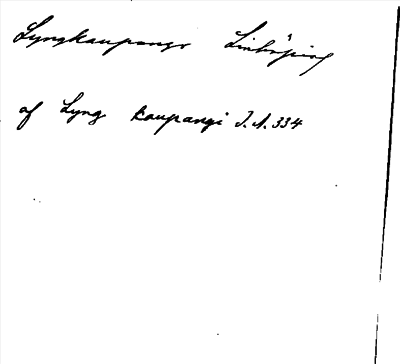 Lyngkaupangr Linköping
af Lyng kaupangi J.A. 334